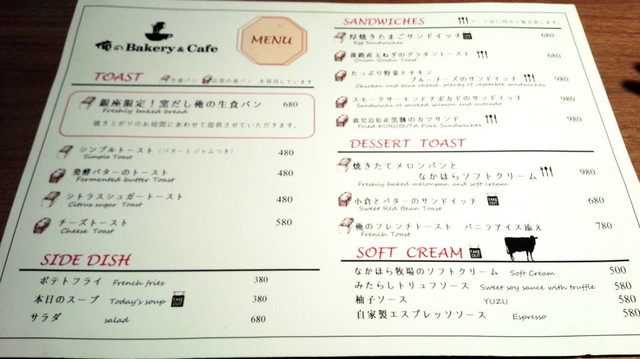 俺の Bakery & Cafe
MENU
TOAST
生食パン
山型の食パン を使用しています
銀座限定！窯だし俺の生食パン 680
Freshly baked bread
焼き上がりのお時間にあわせて提供させていただきます。
シンプルトースト（バターとジャムつき） 480
Simple Toast
発酵バターのトースト 480
Fermented butter Toast
シトラスシュガートースト 480
Citrus sugar Toast
チーズトースト 580
Cheese Toast
SIDE DISH
ポテトフライ French fries 380
本日のスープ Today's soup TAKE OUT 380
サラダ salad 680
SANDWICHES
マークは11時から販売致します。
厚焼きたまごサンドイッチ 680
Egg Sandwiches
淡路産玉ねぎのグラタントースト 980
Onion Gratin Toast
たっぷり野菜とチキン
ブルーチーズのサンドイッチ 980
Chicken and blue cheese, plenty of vegetable sandwiches
スモークサーモンとアボカドのサンドイッチ 980
Sandwiches of smoked salmon and avocado
鹿児島県産黒豚のカツサンド 980
Fried KUROBUTA Pork Sandwiches
DESSERT TOAST
焼きたてメロンパンと
なかほらソフトクリーム 980
Freshly baked melonpan and soft cream
小倉とバターのサンドイッチ TAKE OUT 680
Sweet Red Bean Toast
俺のフレンチトースト バニラアイス添え 780
French Toast
SOFT CREAM TAKE OUT
なかほら牧場のソフトクリーム Soft Cream 500
みたらしトリュフソース Sweet soy sauce with truffle 580
柚子ソース YUZU 580
自家製エスプレッソソース Espresso 580